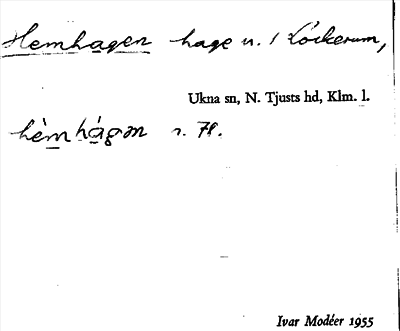 Hemhagen hage u. / Lockerum,
Ukna sn, N. Tjusts hd, Klm. l.
hèmhágən r. 71.
Ivar Modéer 1955